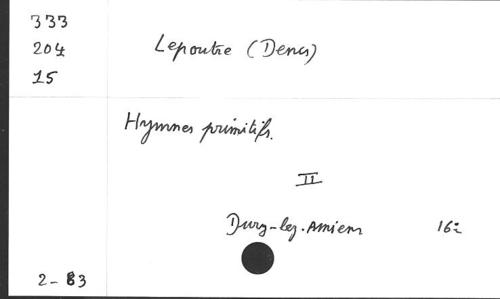 333
204
15
Lepoutre (Denis)
Hymnes primitifs.
II
Dury-lez-Amiens 16°
2-83